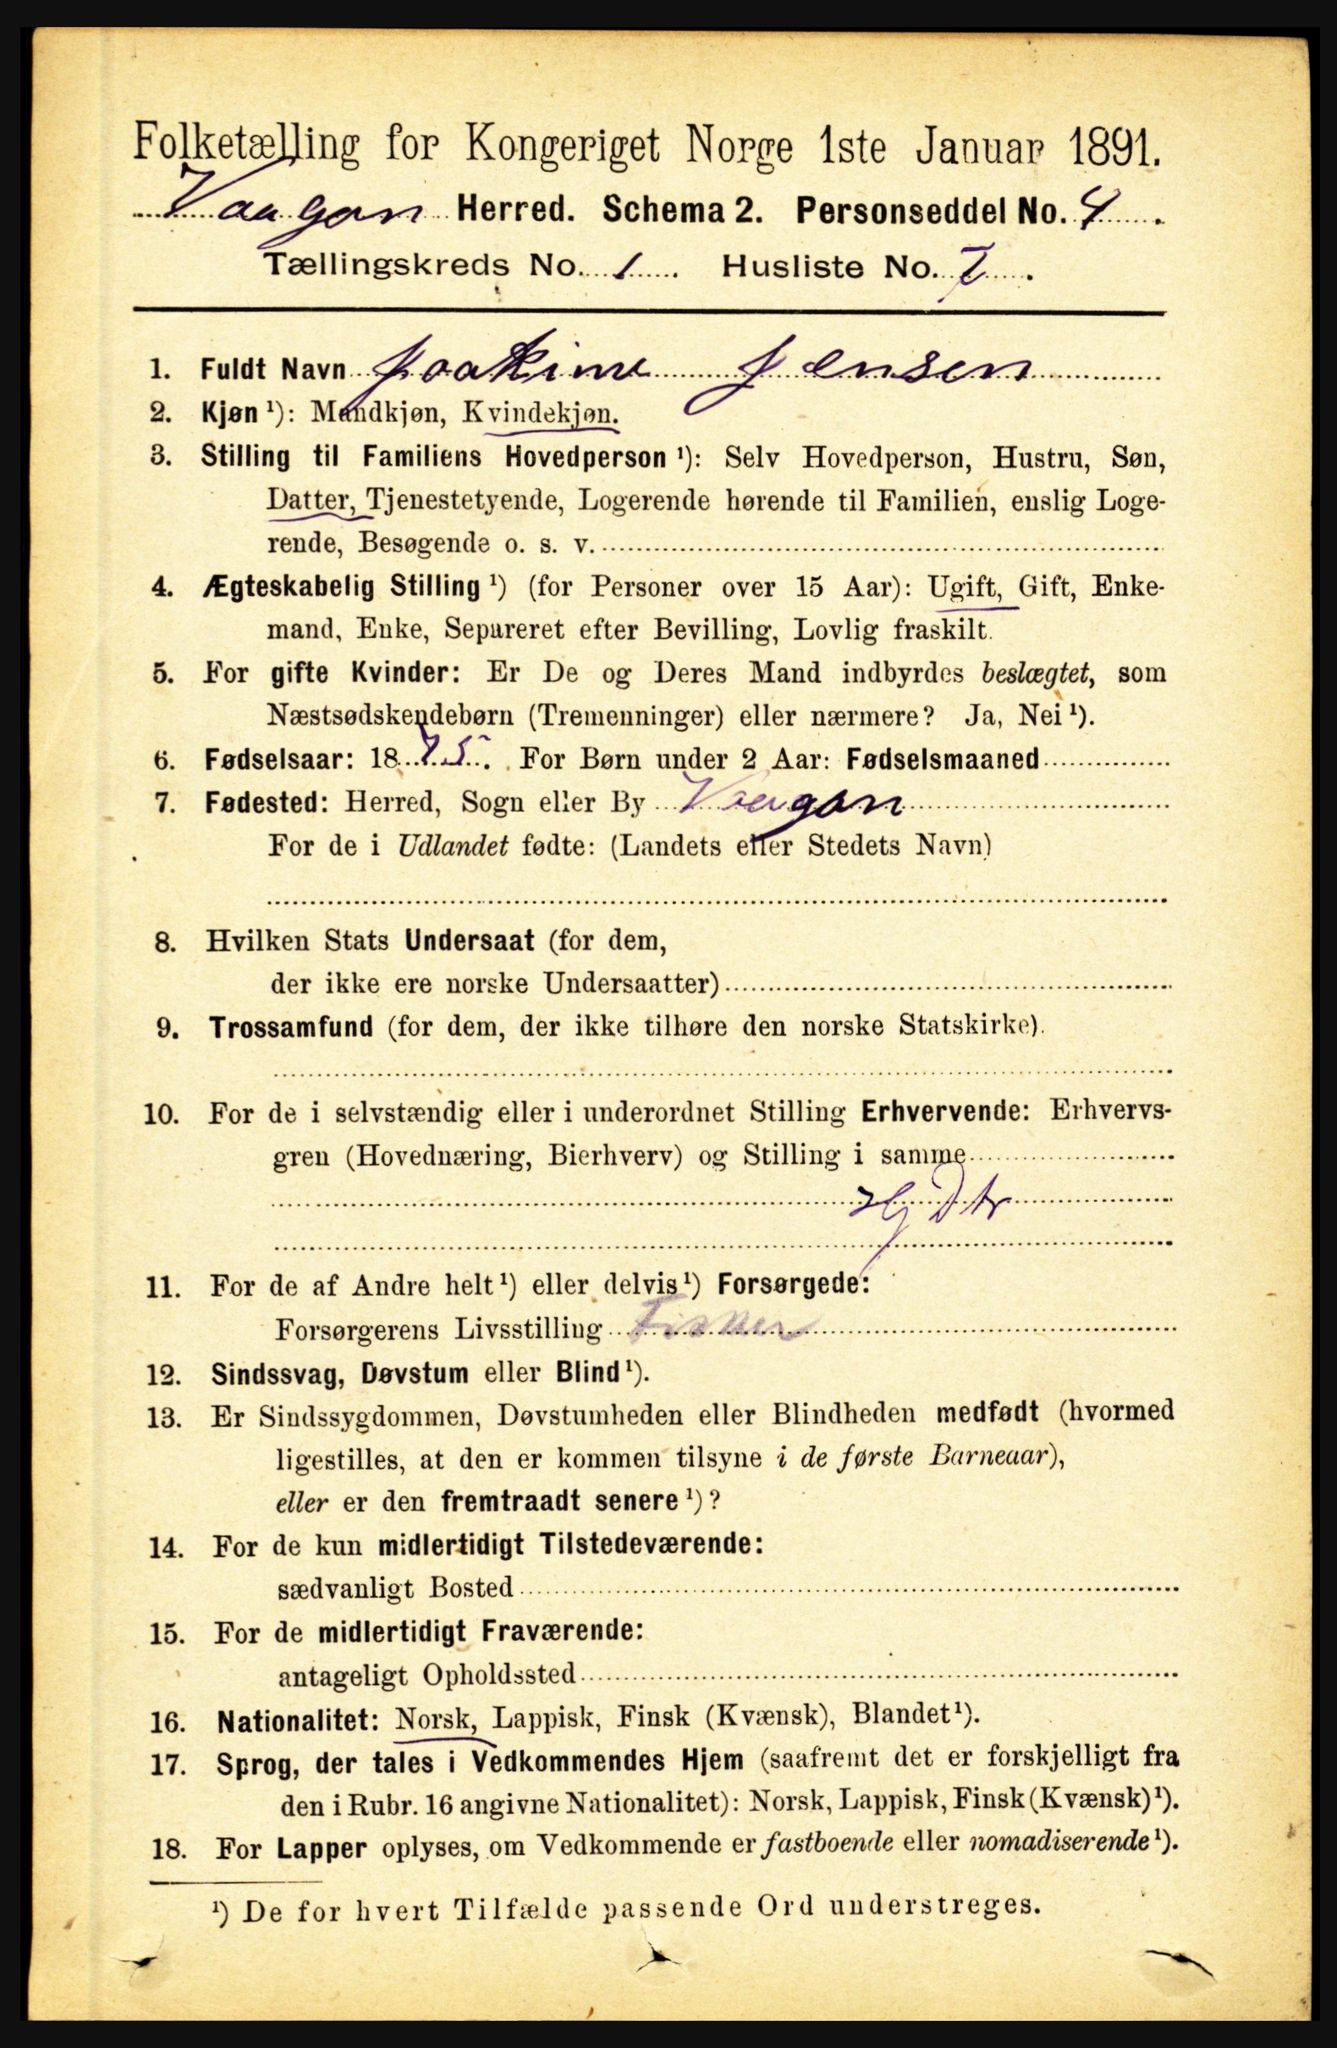 Folketælling for Kongeriget Norge 1ste Januar 1891.
Vaagan Herred. Schema 2. Personseddel No. 4.
Tællingskreds No. 1. Husliste No. 7.
1. Fuldt Navn Joakime Jensen
2. Kjøn ¹): Mandkjøn, Kvindekjøn.
3. Stilling til Familiens Hovedperson ¹): Selv Hovedperson, Hustru, Søn,
Datter, Tjenestetyende, Logerende hørende til Familien, enslig Loge-
rende, Besøgende o. s. v.
4. Ægteskabelig Stilling ¹) (for Personer over 15 Aar): Ugift, Gift, Enke-
mand, Enke, Separeret efter Bevilling, Lovlig fraskilt.
5. For gifte Kvinder: Er De og Deres Mand indbyrdes beslægtet, som
Næstsødskendebørn (Tremenninger) eller nærmere? Ja, Nei ¹).
6. Fødselsaar: 1875. For Børn under 2 Aar: Fødselsmaaned
7. Fødested: Herred, Sogn eller By Vaagan
For de i Udlandet fødte: (Landets eller Stedets Navn)
8. Hvilken Stats Undersaat (for dem,
der ikke ere norske Undersaatter)
9. Trossamfund (for dem, der ikke tilhøre den norske Statskirke).
10. For de i selvstændig eller i underordnet Stilling Erhvervende: Erhvervs-
gren (Hovednæring, Bierhverv) og Stilling i samme
Hj Dtr
11. For de af Andre helt ¹) eller delvis ¹) Forsørgede:
Forsørgerens Livsstilling Fisker
12. Sindssvag, Døvstum eller Blind ¹).
13. Er Sindssygdommen, Døvstumheden eller Blindheden medfødt (hvormed
ligestilles, at den er kommen tilsyne i de første Barneaar),
eller er den fremtraadt senere ¹)?
14. For de kun midlertidigt Tilstedeværende:
sædvanligt Bosted
15. For de midlertidigt Fraværende:
antageligt Opholdssted
16. Nationalitet: Norsk, Lappisk, Finsk (Kvænsk), Blandet ¹).
17. Sprog, der tales i Vedkommendes Hjem (saafremt det er forskjelligt fra
den i Rubr. 16 angivne Nationalitet): Norsk, Lappisk, Finsk (Kvænsk) ¹).
18. For Lapper oplyses, om Vedkommende er fastboende eller nomadiserende ¹).
¹) De for hvert Tilfælde passende Ord understreges.